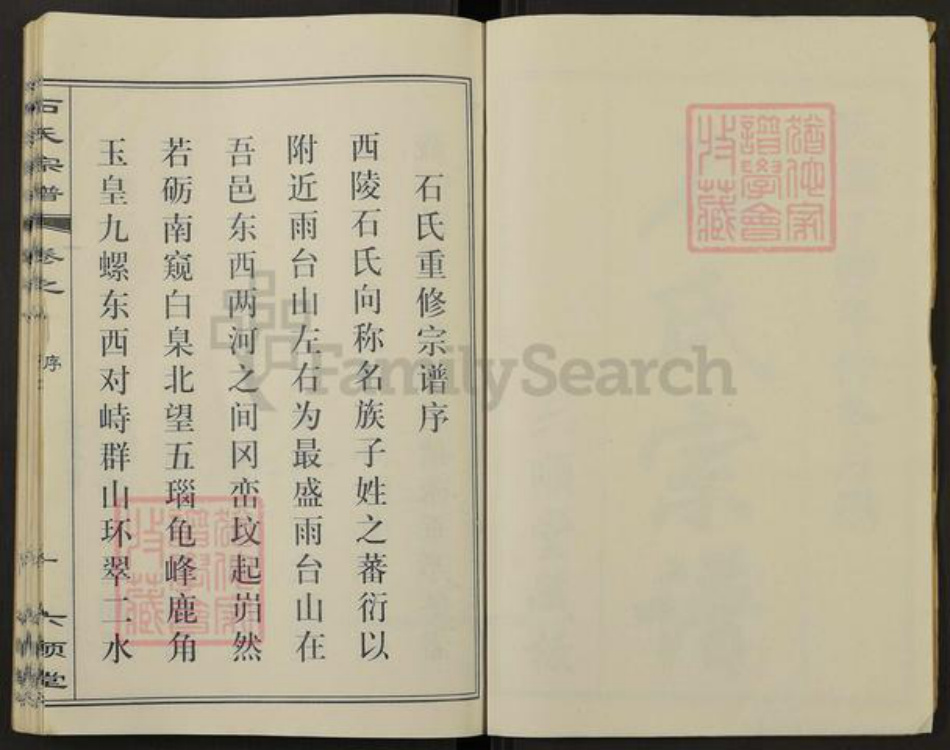 石氏重修宗谱序
西陵石氏向称名族子姓之蕃衍以
附近雨台山左右为最盛雨台山在
吾邑东西两河之间冈峦坟起岿然
若砺南窥白臬北望五瑙龟峰鹿角
玉皇九螺东西对峙群山环翠二水
石氏宗谱
卷之
序
一
六顺堂
FamilySearch
谱学会
收藏